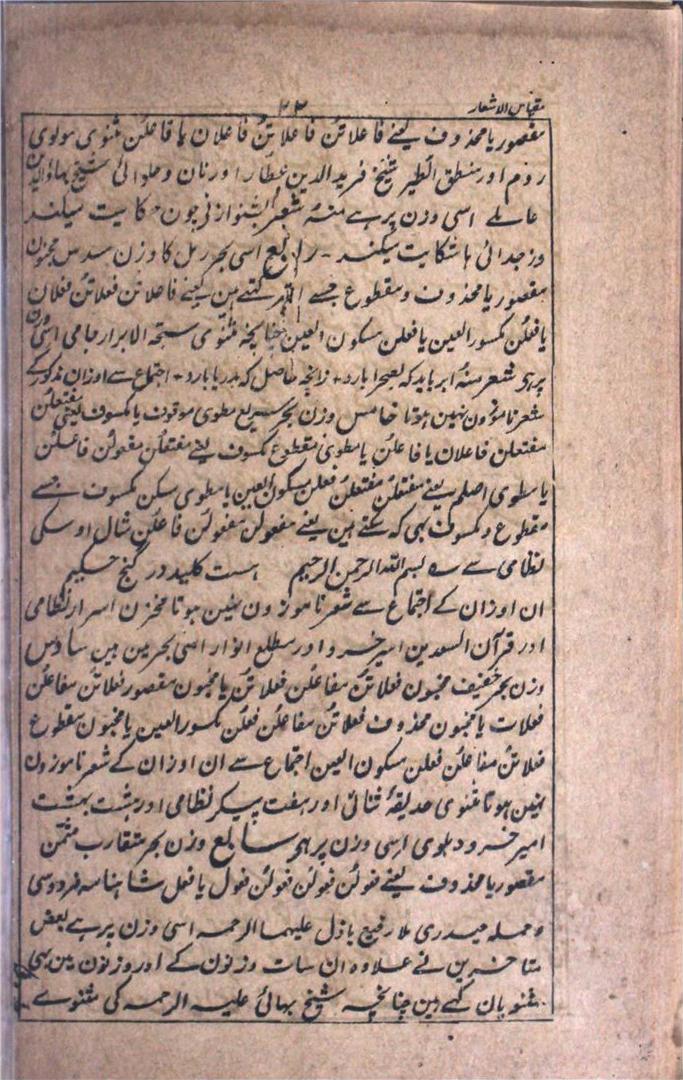 مقیاس الاشعار
۲۳
مقصور یا محذوف یعنے فاعلاتن فاعلاتن فاعلان یا فاعلن مثنوی مولوی
روم اور منطق الطیر شیخ فرید الدین عطار اور نان و حلوائی شیخ بہاؤالدین
عاملے اسی وزن پر ہے منہ شعر بشنو از نی چون حکایت میکند
وز جدائی ہا شکایت میکند۔ رابع اسی بحر رمل کا وزن مسدس مخبون
مقصور یا محذوف و مقطوع جسے کہتے ہین یعنے فاعلاتن فعلاتن فعلان
یا فعلن کمسور العین یا فعلن سکون العین چنانچہ مثنوی سبحۃ الابرار جامی اسی وزن
پر ہو شعر منہ ابر باید کہ بصحرا بارد + زانچہ حاصل کہ بدریا بارد + اجتماع سے اوزان مذکور کے
شعر ناموزون نہین ہوتا خامس وزن بحر سریع مطوی موقوف یا کمسوف یعنی مفتعلن
مفتعلن فاعلان یا فاعلن یا مطوی مقطوع کمسوف یعنے مفتعلن مفعولن فاعلن
یا مطوی اصلم یعنے مفتعلن مفتعلن فعلن سکون العین یا مطوی مسکن کمسوف جسے
مقطوع و کمسوف بہی کہ سکتے ہین یعنے مفعولن مفعولن فاعلن مثال اوسکی
نظامی سے ؎ بسم اللہ الرحمن الرحیم ہست کلید در گنج حکیم
ان اوزان کے اجتماع سے شعر ناموزون نہین ہوتا مخزن اسرار نظامی
اور قرآن السعدین امیر خسرو اور مطلع انوار اسی بحر مین ہین سادس
وزن بحر خفیف مخبون فعلاتن مفاعلن فعلاتن یا مخبون مقصور فعلاتن مفاعلن
فعلات یا مخبون محذوف فعلاتن مفاعلن فعلن کمسور العین یا مخبون مقطوع
فعلاتن مفاعلن فعلن سکون العین اجتماع سے ان اوزان کے شعر ناموزون
نہین ہوتا مثنوی حدیقۂ ثنائی اور ہفت پیکر نظامی اور ہشت بہشت
امیر خسرو دہلوی اسی وزن پر ہو سابع وزن بحر متقارب مثمن
مقصور یا محذوف یعنے فعولن فعولن فعولن فعول یا فعل شاہنامہ فردوسی
و حملہ حیدری ملا رفیع باذل علیہما الرحمہ اسی وزن پر ہے بعض
متاخرین نے علاوہ ان سات وزنون کے اور وزنون مین بہی
مثنویان کہے ہین چنانچہ شیخ بہائی علیہ الرحمہ کی مثنوے